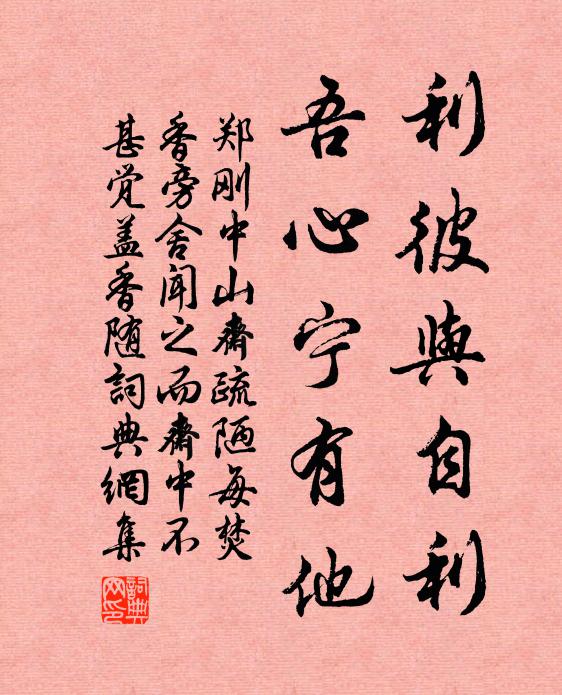 利彼與自利
吾心宁有他
郑刚中山斋疏陋每焚
香旁舍闻之而斋中不
甚觉盖香随詞典網集
詞典
网印